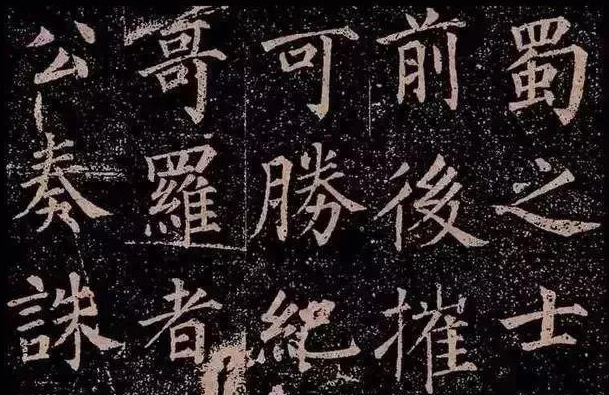 蜀之士
前後摧
可勝紀
哥羅者
公奏誅